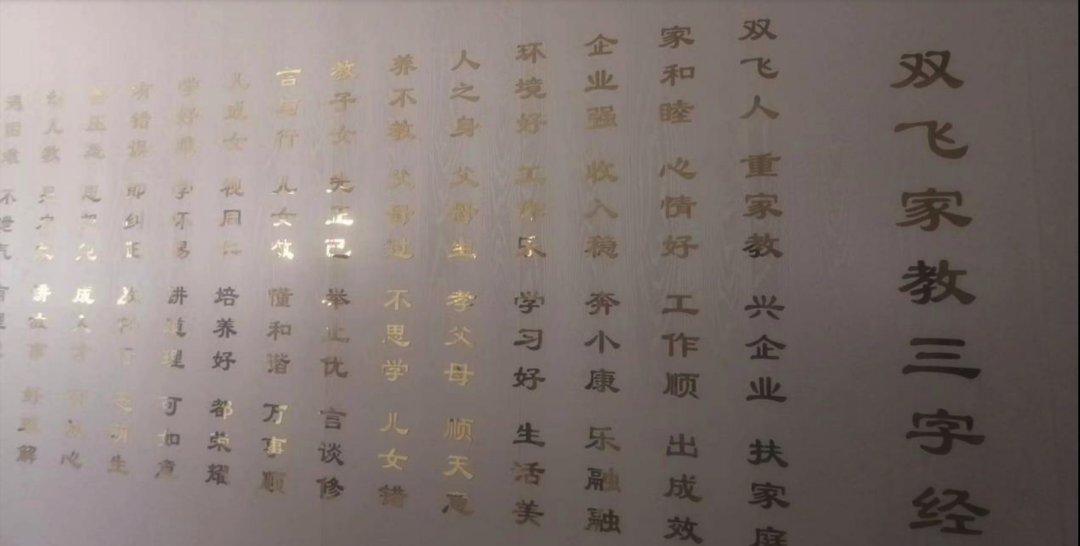 双飞家教三字经
双飞人 重家教 兴企业 扶家庭
家和睦 心情好 工作顺 出成效
企业强 收入稳 奔小康 乐融融
环境好 工作乐 学习好 生活美
人之身 父母生 孝父母 顺天意
养不教 父母过 不思学 儿女错
教子女 先正己 举止优 言谈修
言与行 儿女效 懂和谐 万事顺
儿或女 视同仁 培养好 都荣耀
学好难 学坏易 讲道理 可如意
有错误 即纠正
成人才
幼儿教 讲故事 好理解
遇困难 不泄气